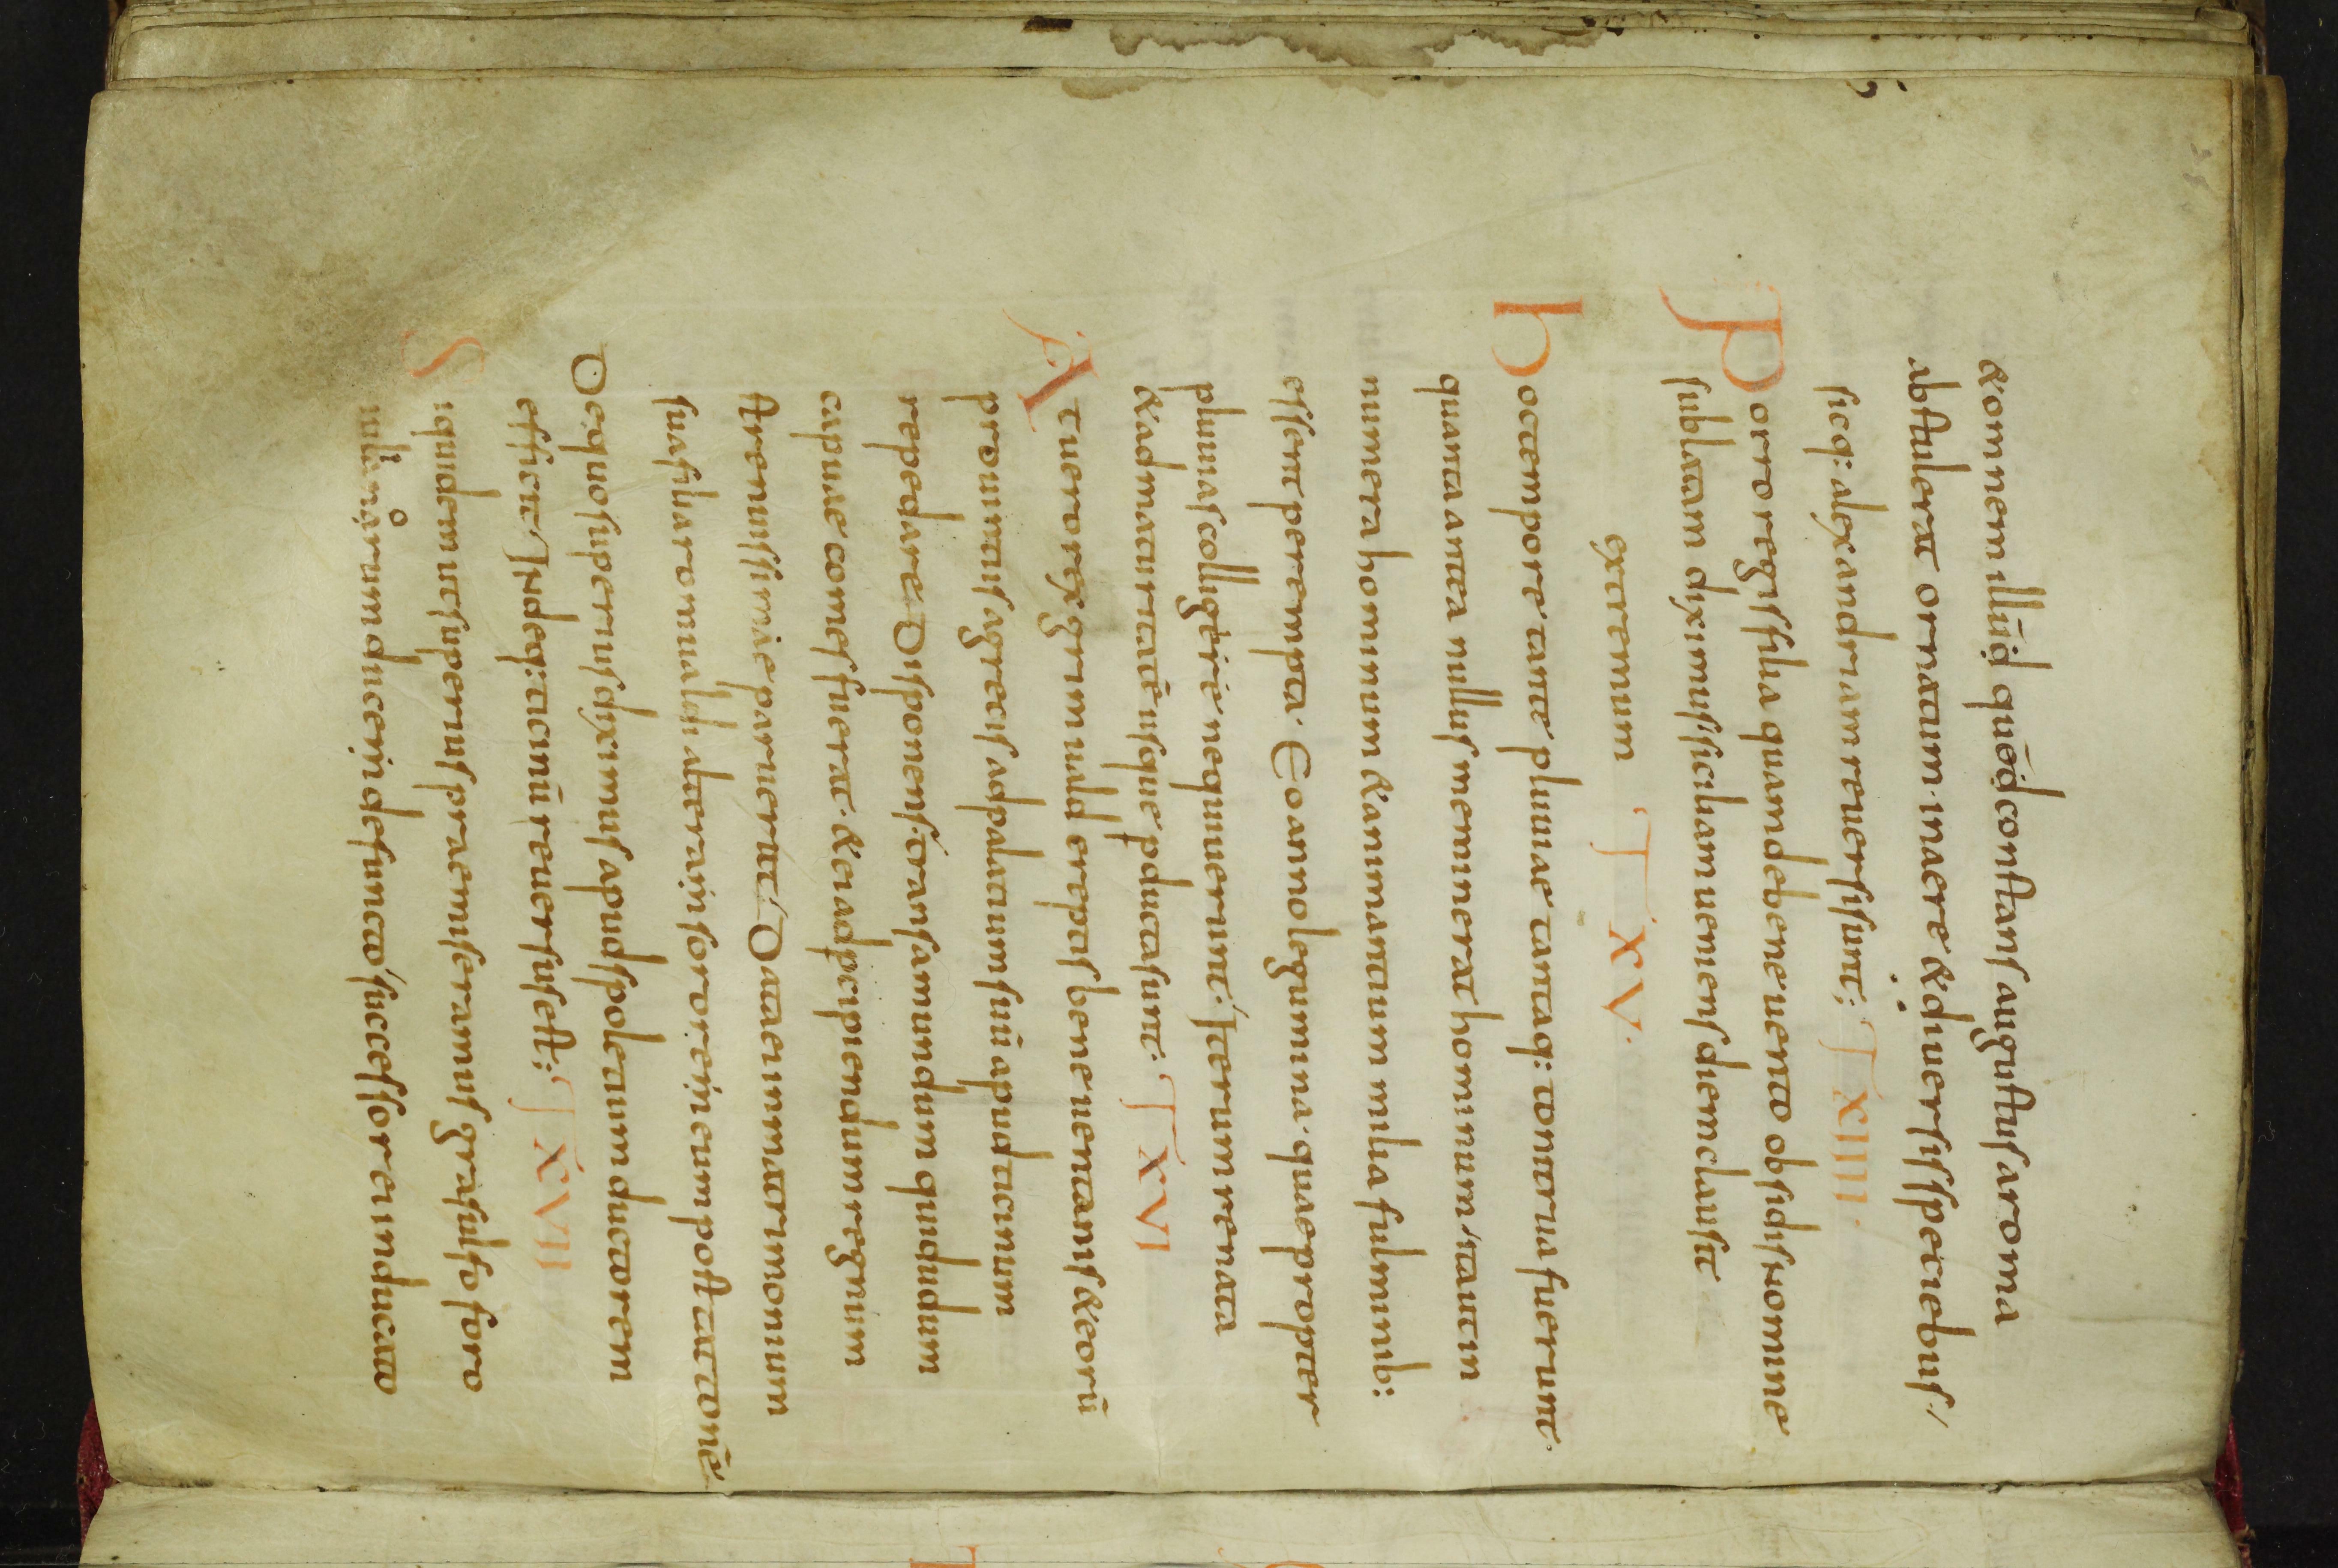 &omnem illud quod constans augustus a roma
abstulerat ornatum in aere & diuersis speciebus,
sicq: alexandriam reuersi sunt; XIIII.
Porro regis filia quam de beneuento obsidis nomine
sublatam diximus siciliam ueniens diem clausit
extremum XV.
Hoc tempore tante pluuiae tantaq: tonitrua fuerunt.
quanta antea nullus meminerat hominum, ita ut in
numera hominum & animantium milia fulminib:
essent perempta. Eo anno legumina quae propter
pluuias colligere nequiuerunt. iterum renata
& ad maturitatē usque pducta sunt. XVI
At uero rex grimuald ereptis beneuentanis & eorū
prouintiis a grecis ad palatium suū apud ticinum
repedare disponens. transamundum qui dudum
capuae comes fuerat. & ei ad pcipiendum regnum
strenuissimae paruerat. data ei in matrimonium
sua filia romualdi altera sorore eum post attonē
de quo superius diximus apud spoletium ductorem
effecit. Indeq: ticinū reuersus est; XVII
Siquidem ut superius praemiseramus grasulfo foro
iulanorum duce defuncto successor ei in ducato